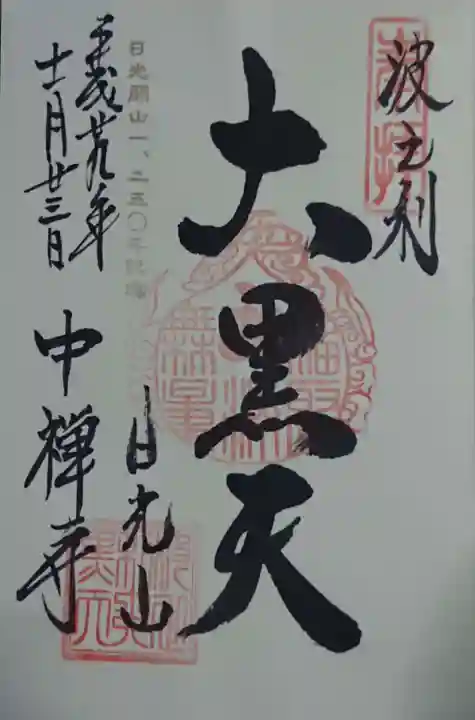 波之利
大黒天
日光開山一、二五〇年記念
日光山
平成廿九年
十一月廿三日
中禅寺